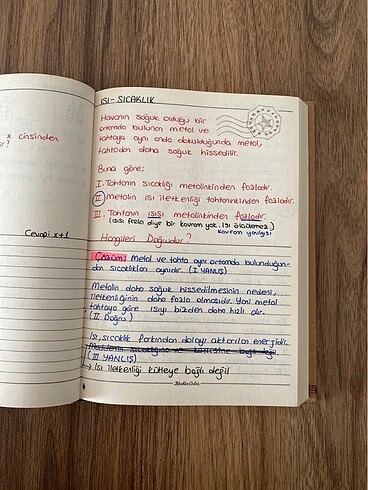 x cinsinden
ir?
Cevap: x+1
ISI - SICAKLIK
Havanın soğuk olduğu bir
ortamda bulunan metal ve
tahtaya aynı anda dokulduğunda metal,
tahtadan daha soğuk hissedilir.
Buna göre;
I. Tahtanın sıcaklığı metalinkinden fazladır.
II metalin ısı iletkenliği tahtanınkinden fazladır.
III. Tahtanın ısısı metalinkinden fazladır.
(ısısı fazla diye bir kavram yok. Isı ölçülemez)
kavram yanılgısı
Hangileri Doğrudur?
Çözüm: Metal ve tahta aynı ortamda bulunduğun-
dan sıcaklıkları aynıdır. (I YANLIŞ)
Metalin daha soğuk hissedilmesinin nedeni,
iletkenliğinin daha fazla olmasıdır. Yani metal
tahtaya göre ısıyı bizden daha hızlı alır.
(II Doğru)
Isı, sıcaklık farkından dolayı aktarılan enerjidir.
Maddenin sıcaklığına ve kütlesine bağlı değil
(III YANLIŞ)
→ Isı iletkenliği kütleye bağlı değil